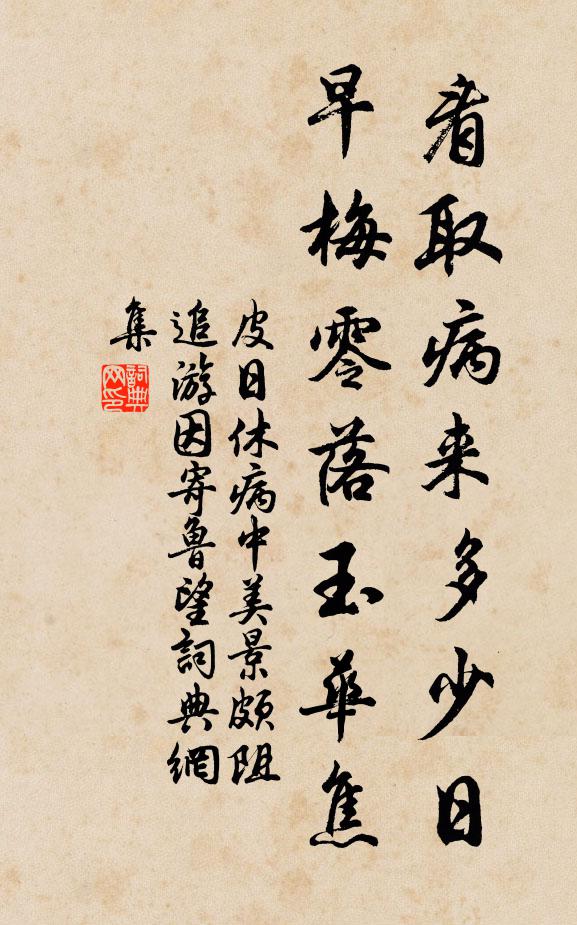 看取病来多少日
早梅零落玉華焦
皮日休病中美景頗阻
追游因寄魯望詞典網
集
詞典
网印